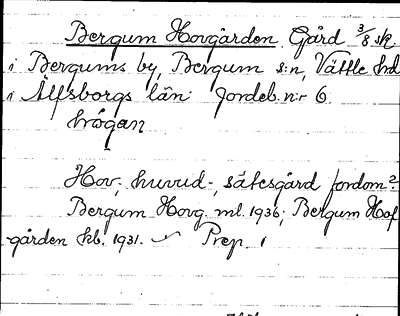 Bergum Hovgården Gård 3/8 sk
i Bergums by, Bergum s:n, Vättle hd
i Älfsborgs län. Jordeb. n:r 6
hɷ̄gan
Hov-, huvud-, sätesgård fordom?
Bergum Hovg. ml. 1936; Bergum Hof
gården kb. 1931. Prep. i